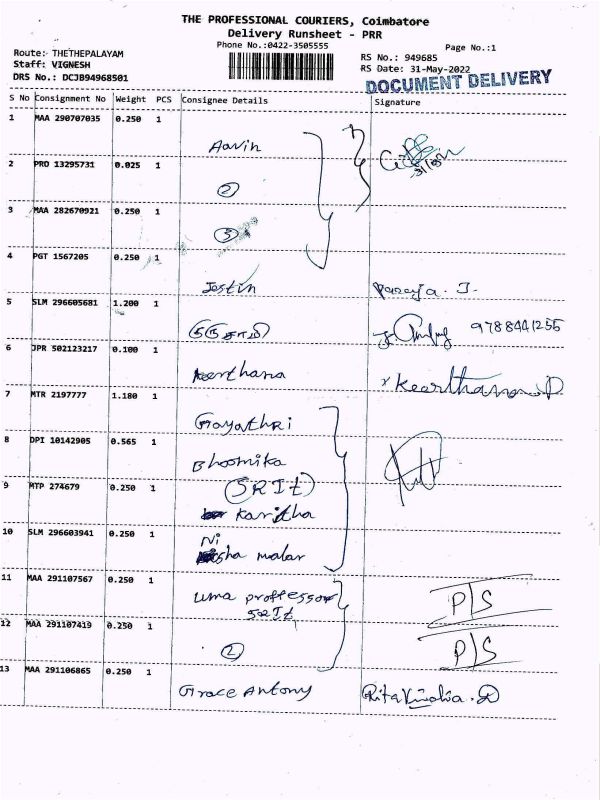 THE PROFESSIONAL COURIERS, Coimbatore
Delivery Runsheet - PRR
Phone No.:0422-3505555
Page No.:1
Route: THETHEPALAYAM
RS No.: 949685
Staff: VIGNESH
RS Date: 31-May-2022
DRS No.: DCJB94968501
DOCUMENT DELIVERY
S No Consignment No Weight PCS Consignee Details Signature
1 MAA 290707035 0.250 1
Aavin
2 PRO 13295731 0.025 1
2
3 MAA 282670921 0.250 1
3
4 PGT 1567205 0.250 1
Jestin
5 SLM 296605681 1.200 1
9788441255
6 JPR 502123217 0.100 1
Keerthana Keerthana D
7 MTR 2197777 1.180 1
Gayathri
8 DPI 10142905 0.565 1
Bhoomika
(SRIt)
9 MTP 274679 0.250 1
Kavitha
10 SLM 296603941 0.250 1
Ni
sha malar
11 MAA 291107567 0.250 1
uma proffessor P/S
SRIt
12 MAA 291107419 0.250 1
2 P/S
13 MAA 291106865 0.250 1
Grace Antony